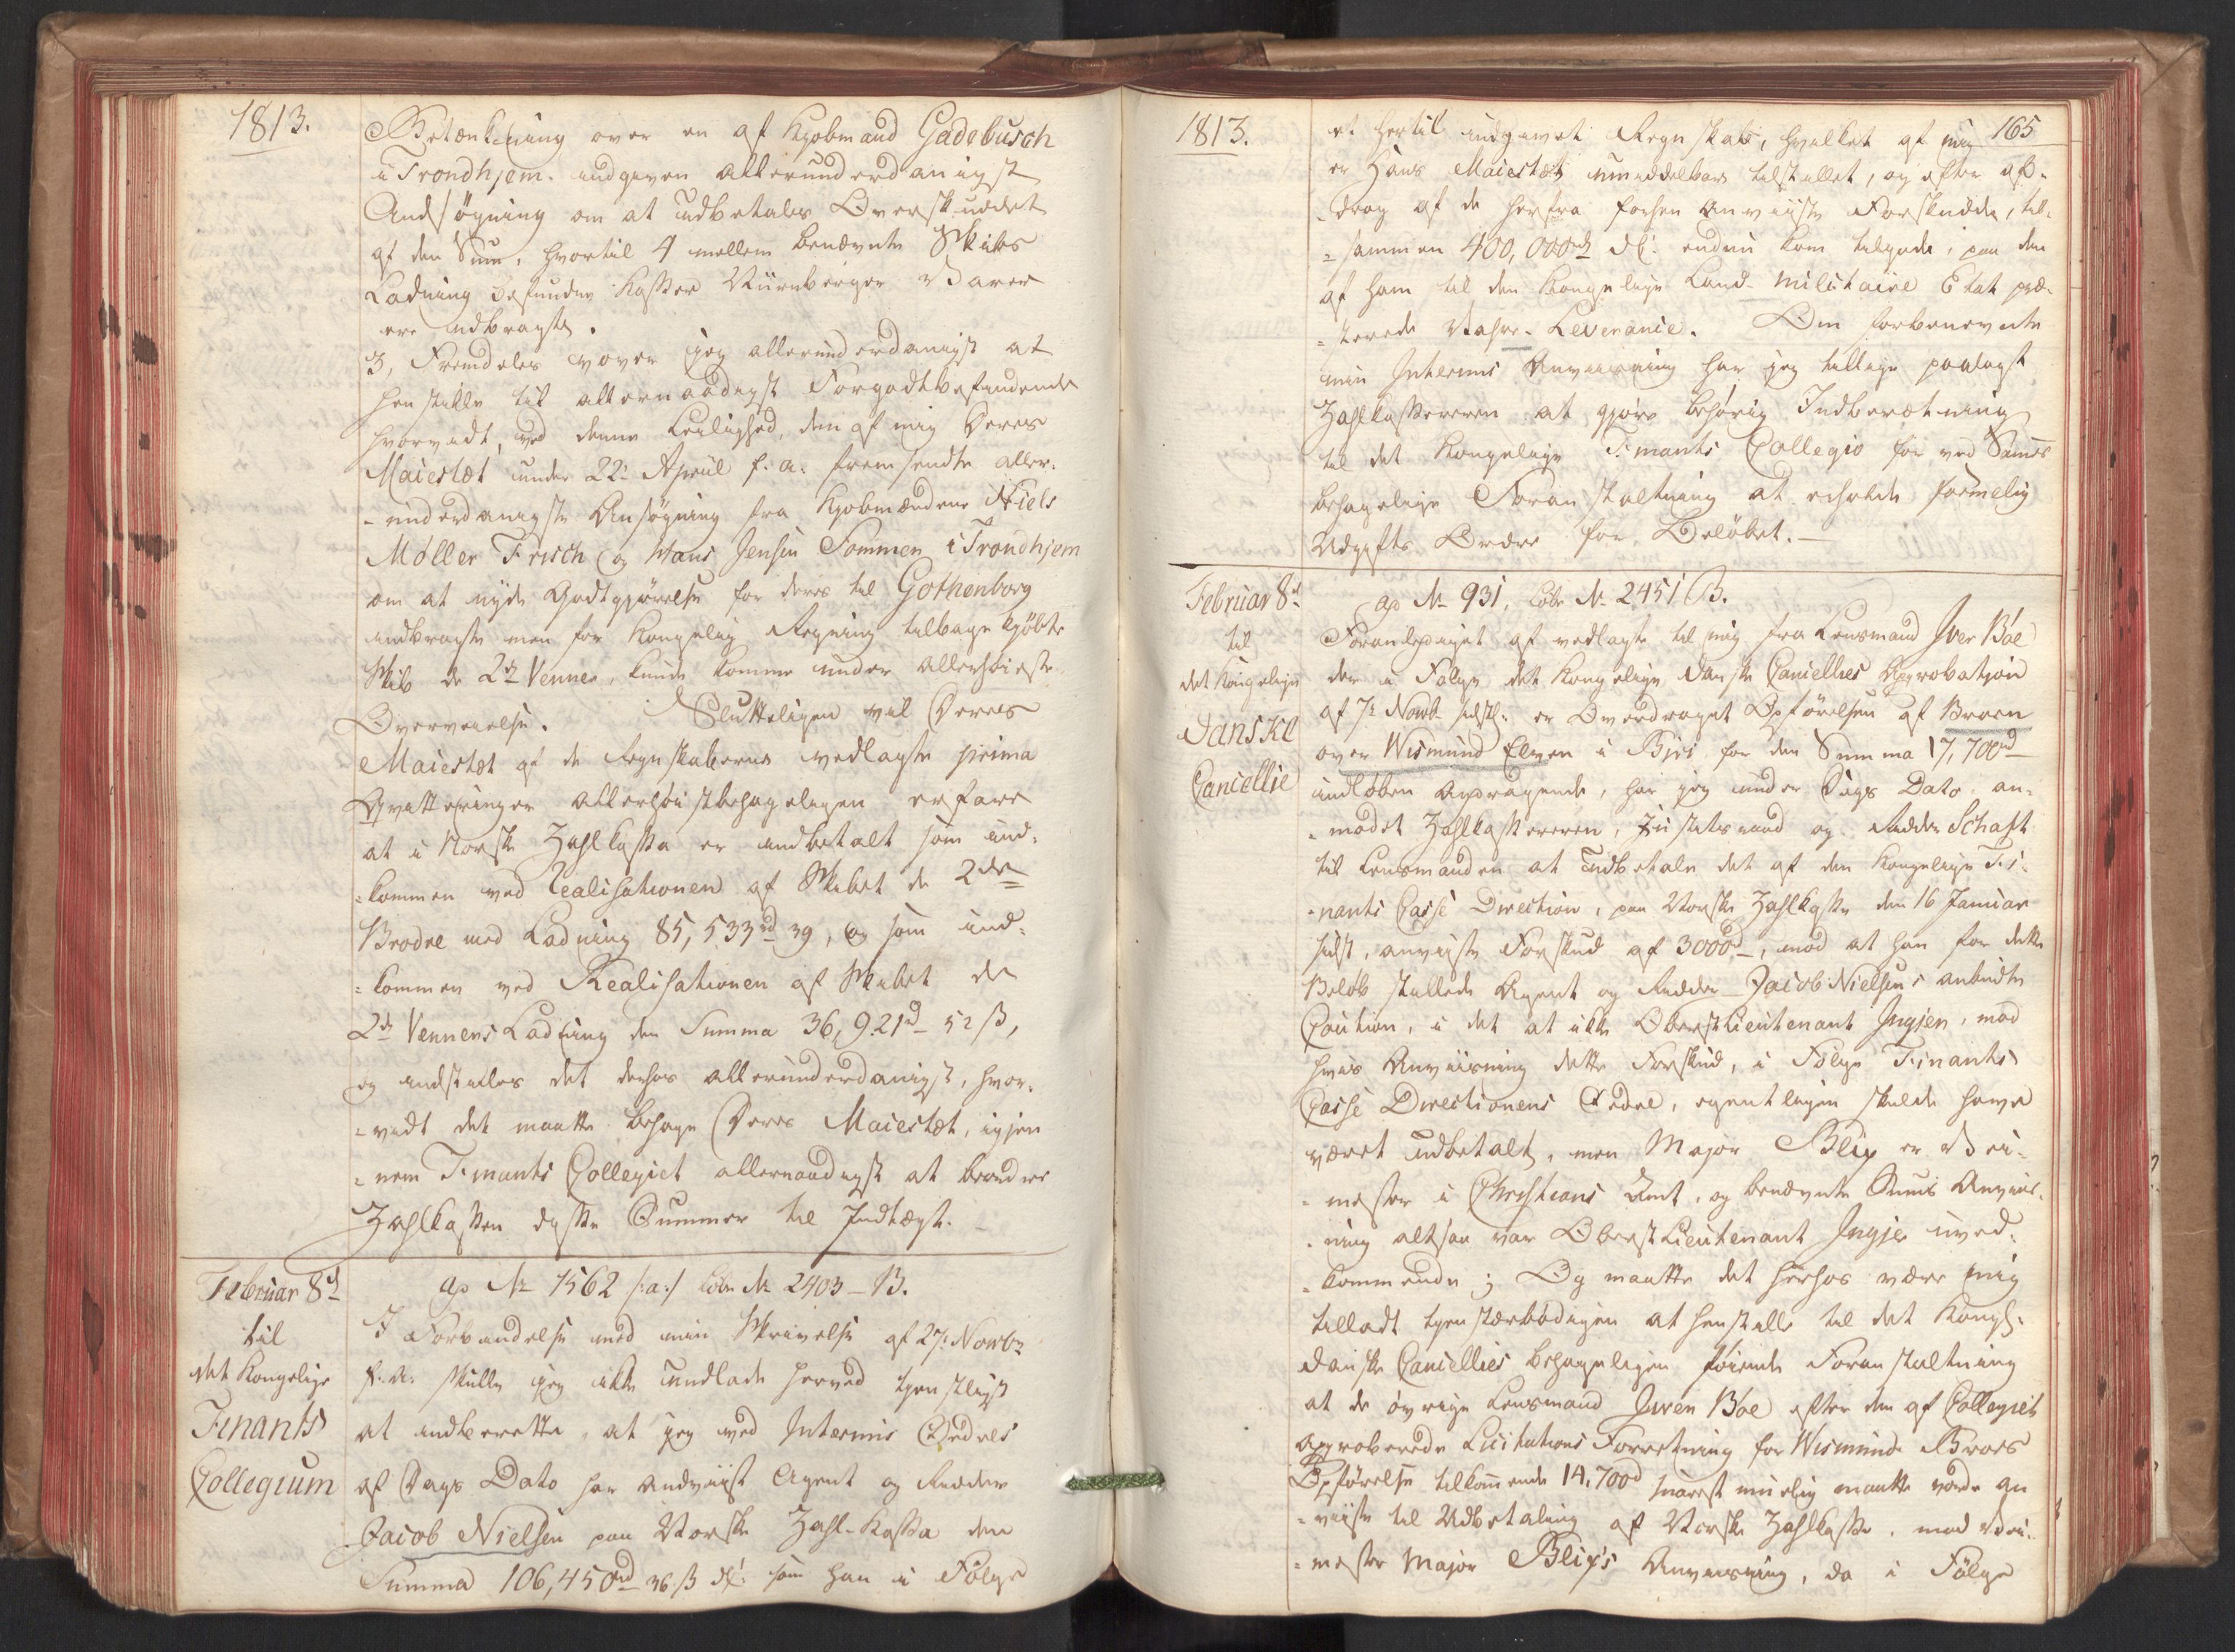 1813.
Betænkning over en af Kjøbmand Gadebusch
i Trondhjem indgiven allerunderdanigst
Andsøgning om at udbetales Overskuddet
af den Sum, hvortil 4 mellem benævnte Skibs
Ladning befundne Kasser Nürnberger Varer
ere udbragte.
3, Fremdeles vover jeg allerunderdanigst at
henstille til allernaadigst Forgodtbefindende
hvorvidt, ved denne Leilighed, den af mig Deres
Maiestæt under 22. April f. a. fremsendte aller-
-underdanigste Ansøgning fra Kjøbmændene Niels
Møller Frisch og Hans Jensen Sommen i Trondhjem
om at nyde Godtgjørelse for deres til Gothenborg
indbragte men for Kongelig Regning tilbagekjøbte
Skib de 2de Venner, kunde komme under allerhøieste
Overveielse. Sluttelig vil Deres
Maiestæt af de Regnskaberne vedlagte prima
Qvitteringer allerhøistbehageligen erfare
at i Norske Zahlkassa er indbetalt som ind-
=kommen ved Realisationen af Skibet de 2de
Brødre med Ladning 85,533 rd 39, og som ind-
=kommen ved Realisationen af Skibet de
2de Venners Ladning den Summa 36,921 d 52 ß,
og indstilles det derhos allerunderdanigst, hvor-
=vidt det maatte behage Deres Maiestæt, igjen-
=nem Finants Collegiet allernaadigst at beordre
Zahlkassen disse Summer til Indtægt.
Februar 8d
til
det Kongelige
Finants
Collegium
ap No 1562 /:a:/ Cobr No 2403 - B.
I Forbindelse med min Skrivelse af 27. Novbr
f. A. skulle jeg ikke undlade herved tjenstligst
at indberette, at jeg ved Interims Ordres
af Dags Dato har andviist Agent og Ridder
Jacob Nielsen paa Norske Zahl-Kassa den
Summa 106,450 rd 36 ß som han i Følge
1813.
165
et hertil indgivet Regnskab, hvilket af mig
er Hans Maiestæt umiddelbar tilstillet, og efter af-
-drag af de herfra forhen anviiste Forskudde, til-
=sammen 400,000 rd endnu kom tilgode, paa den
af ham til den kongelige Land-militaire Etat præ-
=sterede Leverance. Om forbenævnte
min Interims Anviisning har jeg tillige paalagt
Zahlkassereren at gjøre behørig Indberetning
til det Kongelige Finants Collegio for ved Sammes
behagelige Foranstaltning at erholde formelig
Udgifts Ordre for Beløbet.
Februar 8d
til
det Kongelige
Danske
Cancellie
ap No 931, Cobr No 2451 B.
Foranlediget af vedlagte til mig fra Lensmand Iver Boe
der i Følge det Kongelige Danske Cancellies Approbation
af 7. Novbr sidstl. er Overdraget Opførelsen af Broen
over Wismund Elven i Biri for den Summa 17,700 rd
indløben Andragende, har jeg under Dags Dato an-
=modet Zahlkassereren, Justitsraad og Ridder Schaft
til Lensmanden at udbetale det af den Kongelige Fi-
-nants Casse Direction, paa Norske Zahlkasse den 16 Januar
sidst, anviiste Forskud af 3000 d, mod at han for dette
Beløb stillede Agent og Ridder Jacob Nielsens anbudte
Caution, i det at ikke Oberstlieutenant Ingjer, mod
hvis Anviisning dette Forskud, i Følge Finants
Casse Directionens Ordre, egentligen skulde have
været udbetalt, men Major Blix er Vei-
-mester i Christians Amt, og benævnte Sums Anviis-
-ning altsaa var Oberst Lieutenant Ingjer uved-
=kommende; Og maatte det herhos være mig
tilladt tjenstærbødigen at henstille til det Kongl.
Danske Cancellies behageligen føiende Foranstaltning
at de øvrige Lensmand Iwer Boe efter den af Collegiet
approberede Licitations Forretning for Wismunds Broes
Opførelse tilkommende 14,700 d snarest muelig maatte vorde an
=viiste til Udbetaling af Norske Zahlkasse, mod Vei-
=mester Major Blix's Anviisning, da i Følge